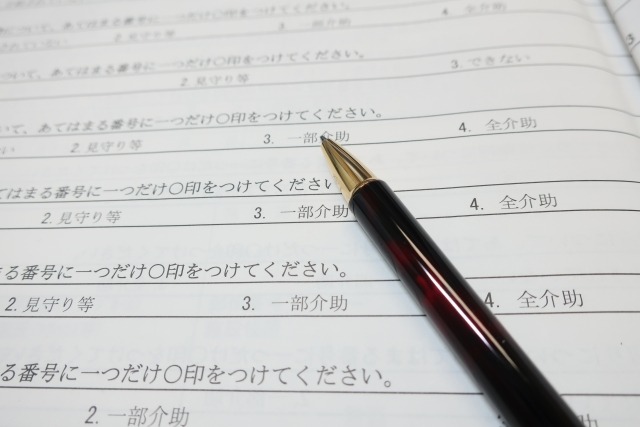 2. 見守り等 3. 一部介助 4. 全介助
ついて、あてはまる番号に一つだけ〇印をつけてください。
2 見守り等 3 できない
いて、あてはまる番号に一つだけ〇印をつけてください。
い 2. 見守り等 3. 一部介助 4. 全介助
てはまる番号に一つだけ〇印をつけてください
2. 見守り等 3. 一部介助 4. 全介助
まる番号に一つだけ〇印をつけてください。
2. 見守り等 3. 一部介助 4. 全介助
る番号に一つだけ〇印をつけてください。
2. 一部介助 3. 全介助